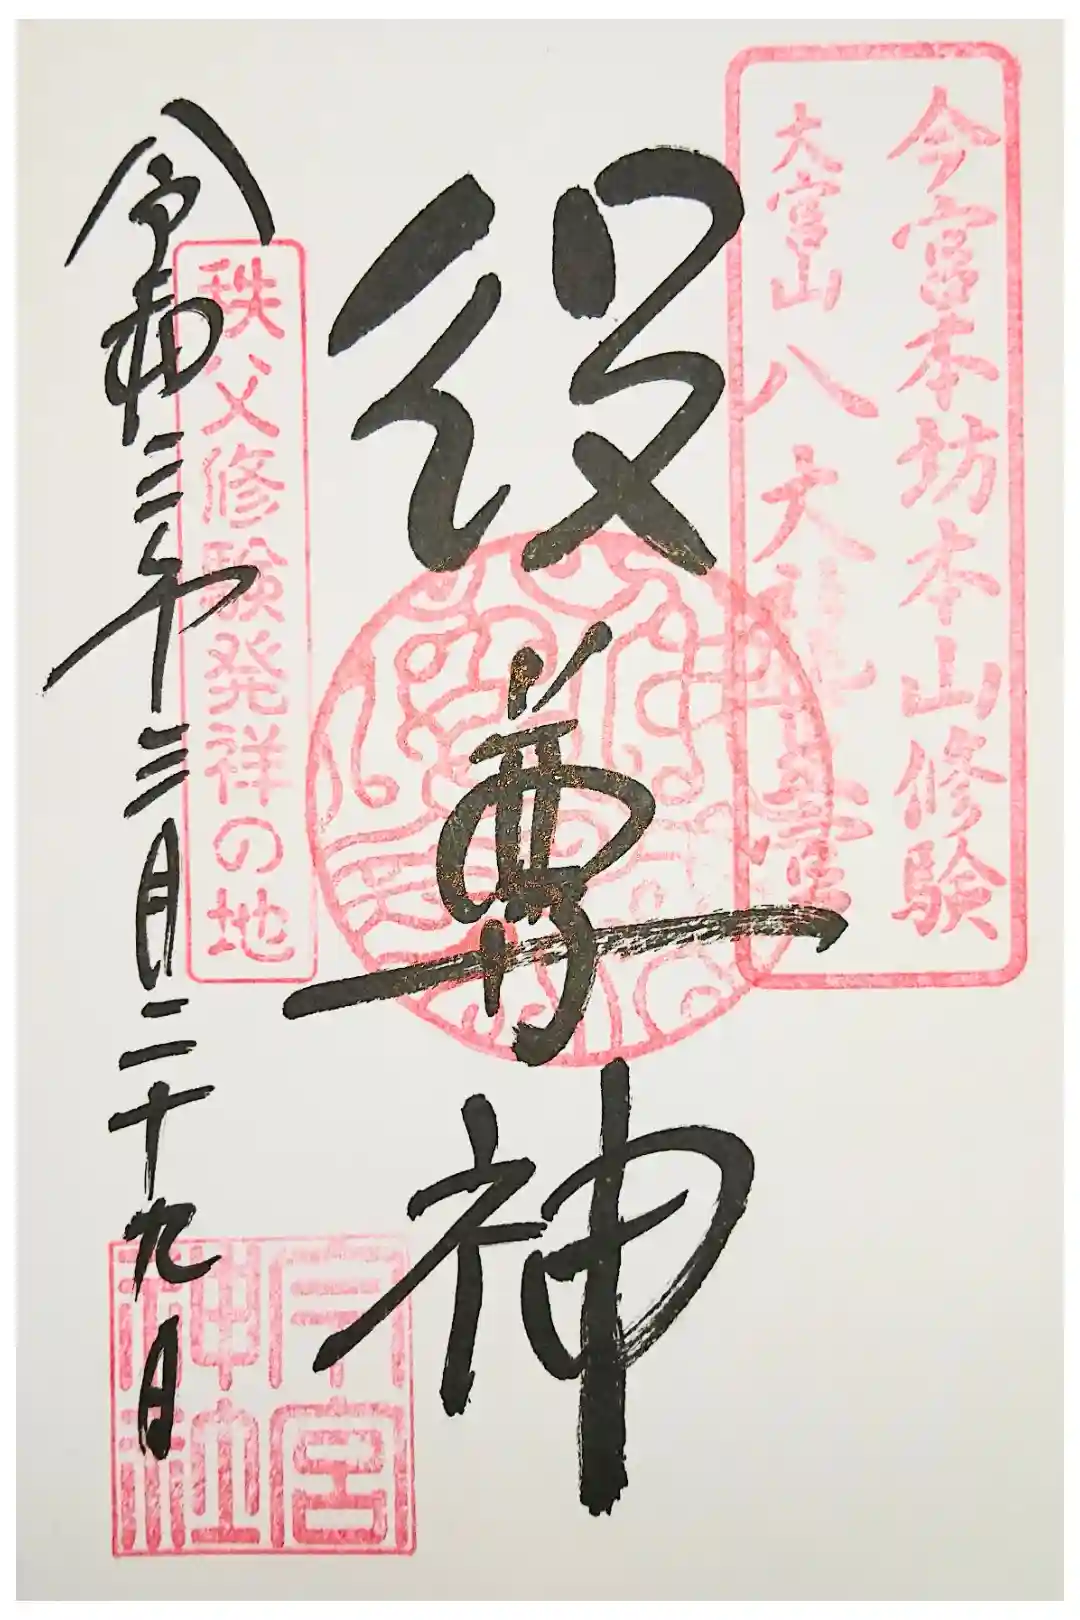 今宮本坊本山修験
大宮山八大龍王堂
役尊神
秩父修験発祥の地
令和三年三月二十九日
今宮神社